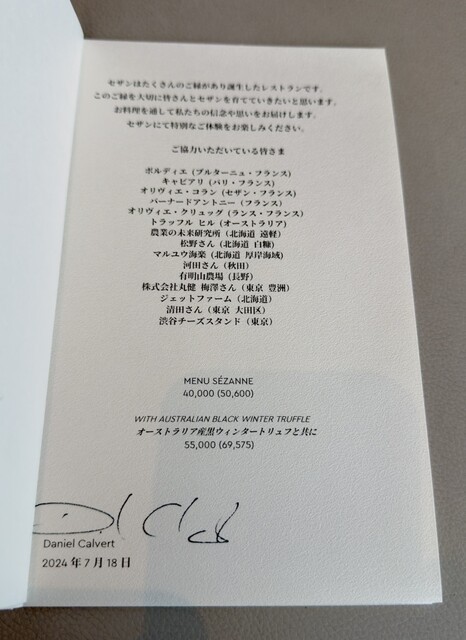 セザンはたくさんのご縁があり誕生したレストランです。
このご縁を大切に皆さんとセザンを育てていきたいと思います。
お料理を通して私たちの信念や思いをお届けします。
セザンにて特別なご体験をお楽しみください。
ご協力いただいている皆さま
ボルディエ (ブルターニュ・フランス)
キャビアリ (パリ・フランス)
オリヴィエ・コラン (セザン・フランス)
バーナードアントニー (フランス)
オリヴィエ・クリュッグ (ランス・フランス)
トラッフル ヒル (オーストラリア)
農業の未来研究所 (北海道 遠軽)
松野さん (北海道 白糠)
マルユウ海楽 (北海道 厚岸海域)
河田さん (秋田)
有明山農場 (長野)
株式会社丸健 梅澤さん (東京 豊洲)
ジェットファーム (北海道)
清田さん (東京 大田区)
渋谷チーズスタンド (東京)
MENU SÉZANNE
40,000 (50,600)
WITH AUSTRALIAN BLACK WINTER TRUFFLE
オーストラリア産黒ウィンタートリュフと共に
55,000 (69,575)
Daniel Calvert
2024年7月18日